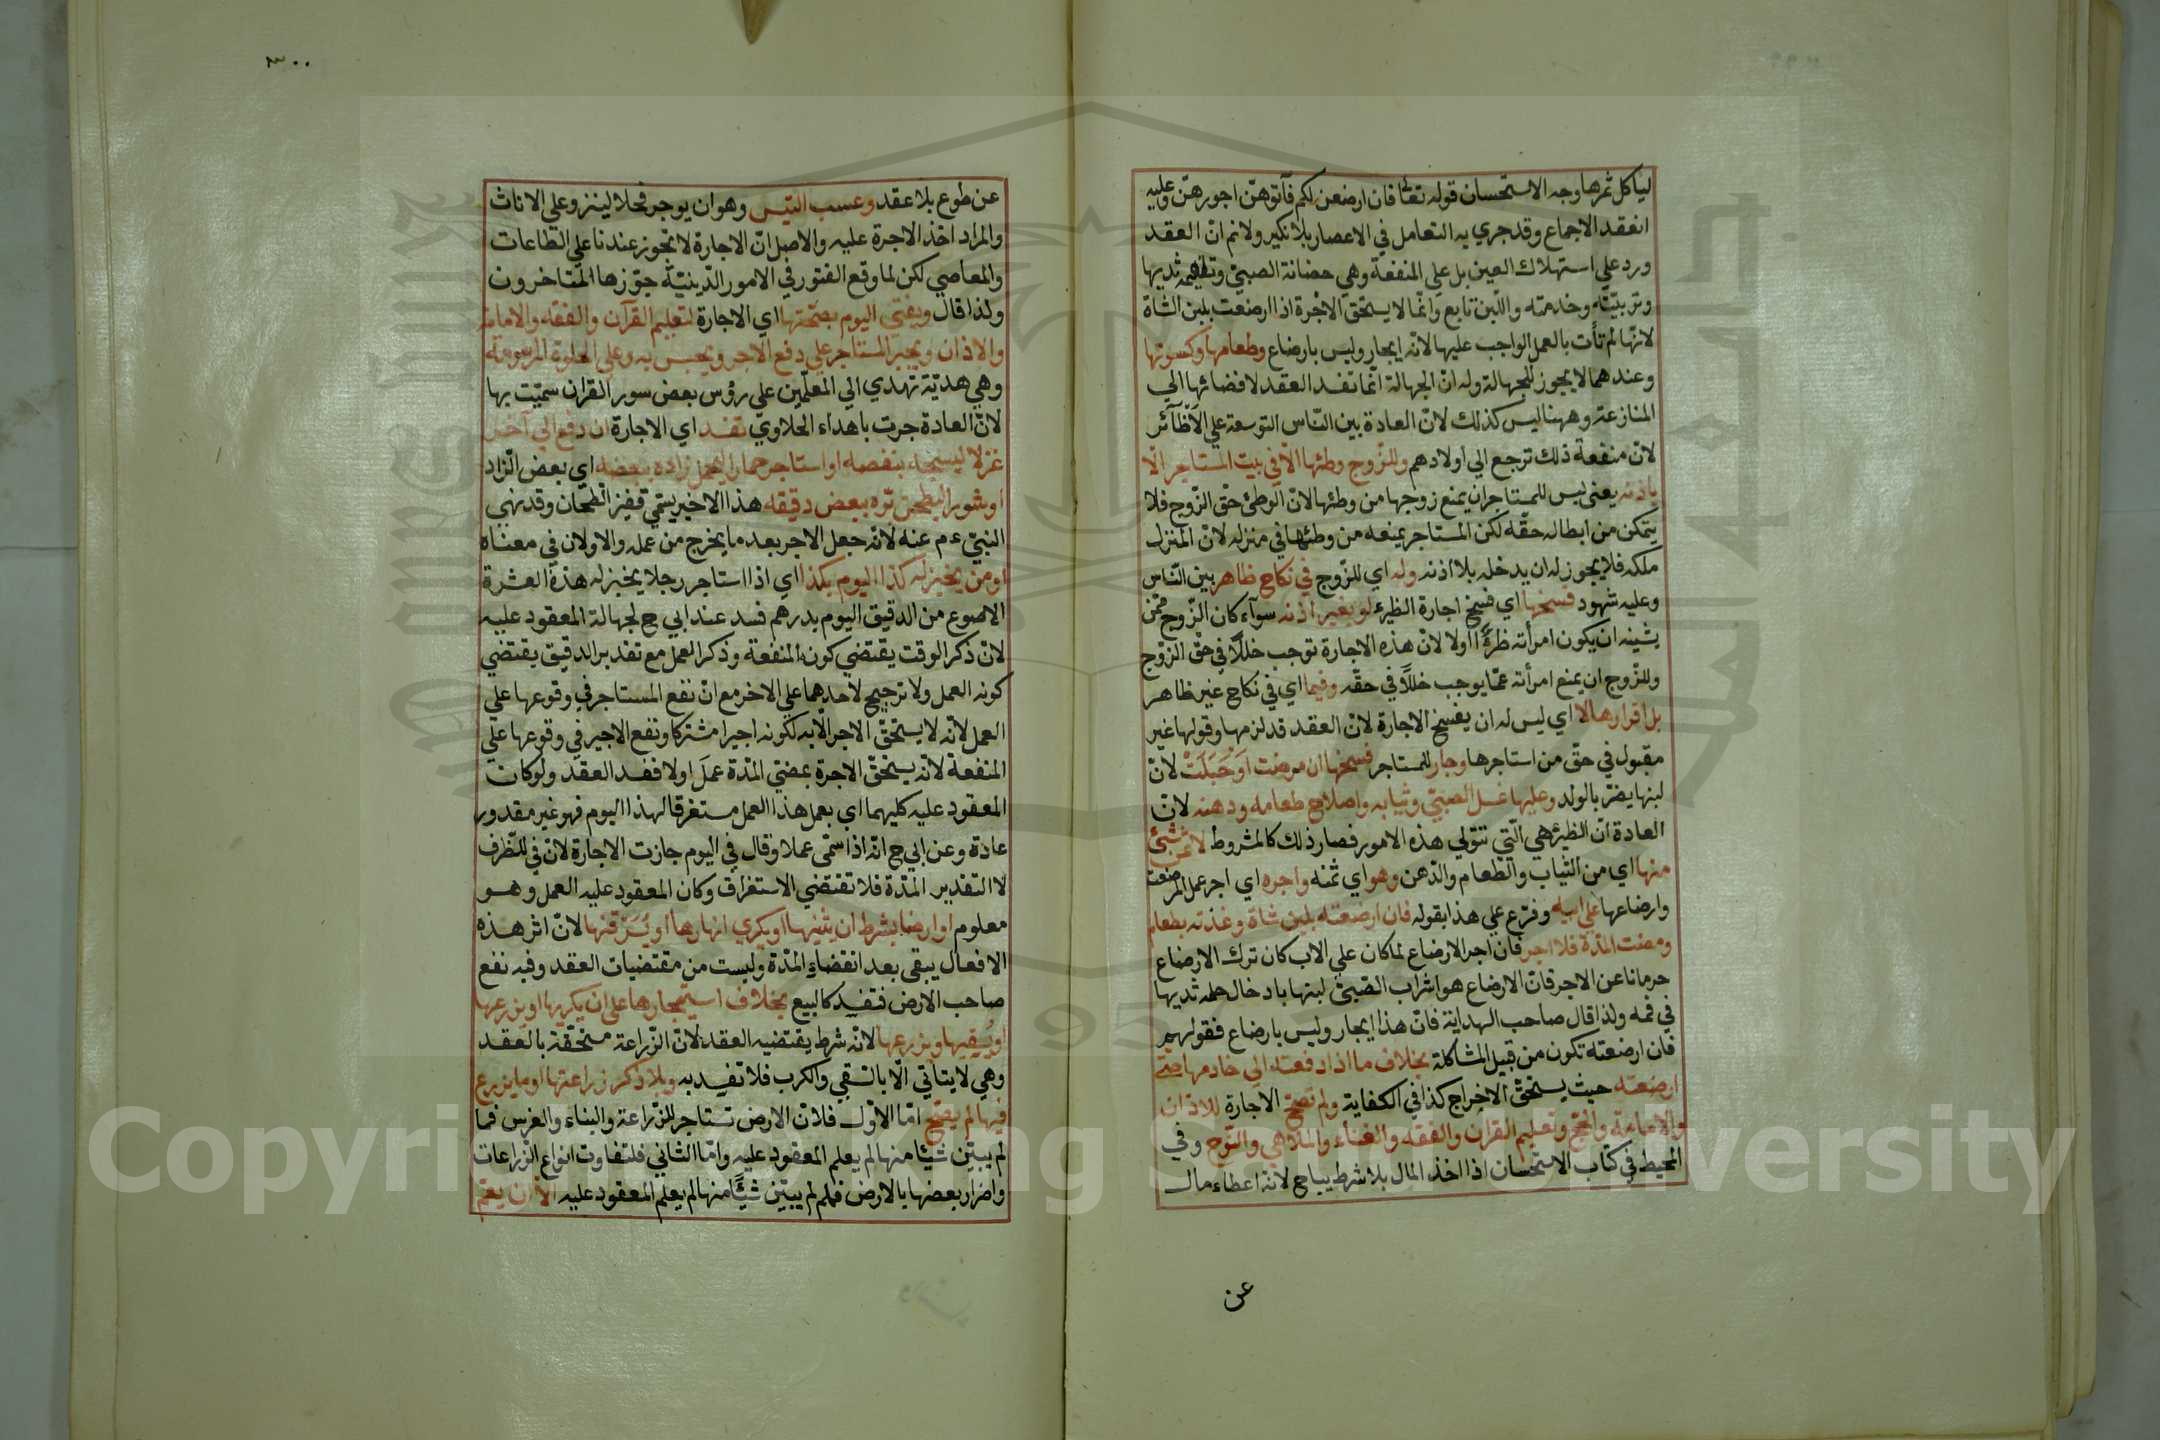 لياكل ثمرها وجه الاستحسان قوله تعالى فان ارضعن لكم فآتوهنّ اجورهنّ وعليه
انعقد الاجماع وقد جري به التعامل في الاعصار بلا نكير ولانم انّ العقد
ورد علي استهلاك العين بل علي المنفعة وهي حضانة الصبيّ وتلقيمه ثديها
وتربيّته وخدمته واللّبن تابع وانّما لا يستحّق الاجرة اذا ارضعت بلبن الشاة
لانّها لم تأت بالعمل الواجب عليها لانّه ايجار وليس بارضاع وطعامها وكسوتها
وعندهما لا يجوز للجهالة وله انّ الجهالة انّما تفسد العقد لافضائها الي
المنازعة وههنا ليس كذلك لانّ العادة بين النّاس التوسعة علي الاظآئر
لانّ منفعة ذلك ترجع الي اولادهم وللزّوج وطئها الّا في بيت المستاجر الّا
باذنه يعني ليس للمستاجر ان يمنع زوجها من وطئها لانّ الوطئ حقّ الزّوج فلا
يتمكن من ابطاله حقّه لكن المستاجر يمنعه من وطئها في منزله لانّ المنزل
ملكه فلا يجوز له ان يدخله بلا اذنه وله اي للزّوج في نكاح ظاهر بين النّاس
وعليه شهود فسخها اي فسخ اجارة الظيرء لو بغير اذنه سوآء كان الزّوج ممّن
يشينه ان يكون امرأته ظرءًا اولا لانّ هذه الاجارة توجب خللًا في حقّ الزوّج
وللزّوج ان يمنع امرأته عمّا يوجب خللًا في حقّه وفيما اي في نكاح غير ظاهر
بل اقرارها لا اي ليس له ان يفسخ الاجارة لانّ العقد قد لزمها وقولها غير
مقبول في حقّ من استاجرها وجاز للمستاجر فسخها ان مرضت اوحَبَلَتْ لانّ
لبنها يضرّ بالولد وعليها غسل الصبيّ وثيابه واصلاح طعامه ودهنه لانّ
العادة انّ الظيرء هي الّتي تتولي هذه الامور فصار ذلك كالمشروط لا ثمن شئ
منها اي من الثياب والطعام والدّهن وهو اي ثمنه واجره اي اجر عمل المرضعت
وارضاعها علي ابيه وفرّع علي هذا بقوله فان ارضعته بلبن شاة وغذته بطعام
ومضت المدّة فلا اجر فان اجر الارضاع لما كان علي الاب كان ترك الارضاع
حرمانا عن الاجر فانّ الارضاع هو اشراب الصّبيّ لبنها بادخال حلمه ثديها
في فمه ولذا قال صاحب الهداية فانّ هذا ايجار وليس بارضاع فقولهم
فان ارضعته تكون من قبيل المشاكلة بخلاف ما اذا دفعته الي خادمها حتّي
ارضعته حيث يستحقّ الاخراج كذا في الكفاية ولم تصحّ الاجارة للاذان
والامامة والحجّ وتعليم القران والفقه والغناء والملاهي والنّوح وفي
المحيط في كتاب الاستحسان اذا اخذ المال بلا شرط يباح لانّه اعطاء مال
عن
٣٠٠
عن طوع بلا عقد وعسب التّيس وهو ان يوجر فحلا لينزو علي الاناث
والمراد اخذ الاجرة عليه والاصل انّ الاجارة لا تجوز عندنا علي الطاعات
والمعاصي لكن لما وقع الفتور في الامور الدّينيّة جوّزها المتاخرون
ولذا قال ويفتي اليوم بصحّتها اي الاجارة لتعليم القرآن والفقه والامامة
والاذان ويجبر المستاجر علي دفع الاجر ويحبس به وعلي الحلوة المرسومة
وهي هديّة تهدي الي المعلّمين علي رؤس بعض سور القران سمّيت بها
لانّ العادة جرت باهداء الحلاوي تفسد اي الاجارة ان دفع الي آخر
غزلا لينسجه بنصفه او استاجر حمارا ليحمل زاده ببعضه اي بعض الزاد
او ثورا ليطحن برّه ببعض دقيقه هذا الاخير يسمّي قفيز الطّحّان وقد نهي
النبيّ ءم عنه لانّه جعل الاجر بعد ما يخرج من عمله والاولان في معناه
او من يخبز له كذا اليوم بكذا اي اذا استاجر رجلا يخبز له هذه العشرة
الاصوع من الدقيق اليوم بدرهم فسد عند ابي ح لجهالة المعقود عليه
لانّ ذكر الوقت يقتضي كون المنفعة وذكر العمل مع تقدير الدقيق يقتضي
كونه العمل ولا ترجيح لاحدهما علي الاخر مع انّ نفع المستاجر في وقوعها علي
العمل لانّه لا يستحقّ الاجر الّا به لكونه اجيرا مشتركا ونفع الاجير في وقوعها علي
المنفعة لانّه يستحقّ الاجرة بمضيّ المدّة عملَ اولا ففسد العقد ولو كان
المعقود عليه كليهما اي بعمل هذا العمل مستغرقا لهذا اليوم فهو غير مقدور
عادة وعن ابي ح انّه اذا سمّي عملا وقال في اليوم جازت الاجارة لانّ في للظّرف
لا التقدير المدّة فلا تقتضي الاستغراق وكان المعقود عليه العمل وهو
معلوم او ارضا بشرط ان يثنيها او يكري انهارها او يُسَرْقنها لانّ اثر هذه
الافعال يبقي بعد انقضاء المدّة وليست من مقتضيات العقد وفيه نفع
صاحب الارض فتفسد كالبيع بخلاف استيجارها علي ان يكربها او يزرعها
او يُسقيها ويزرعها لانّه شرط يقتضيه العقد لانّ الزّراعة مستحّقة بالعقد
وهي لا يتاتّي الّا بالسّقي والكرب فلا تفسد به وبلا ذكر زراعتها او ما يزرع
فيها لم يصحّ امّا الاوّل فلانّ الارض تستاجر للزّراعة والبناء والغرس فما
لم يبيّن شيئا منها لم يعلم المعقود عليه وامّا الثاني فلتفاوت انواع الزّراعات
واضرار بعضها بالارض فلم لم يبيّن شيئًا منها لم يعلم المعقود عليه الّا ان يعمّ
Copyright © King Saud University